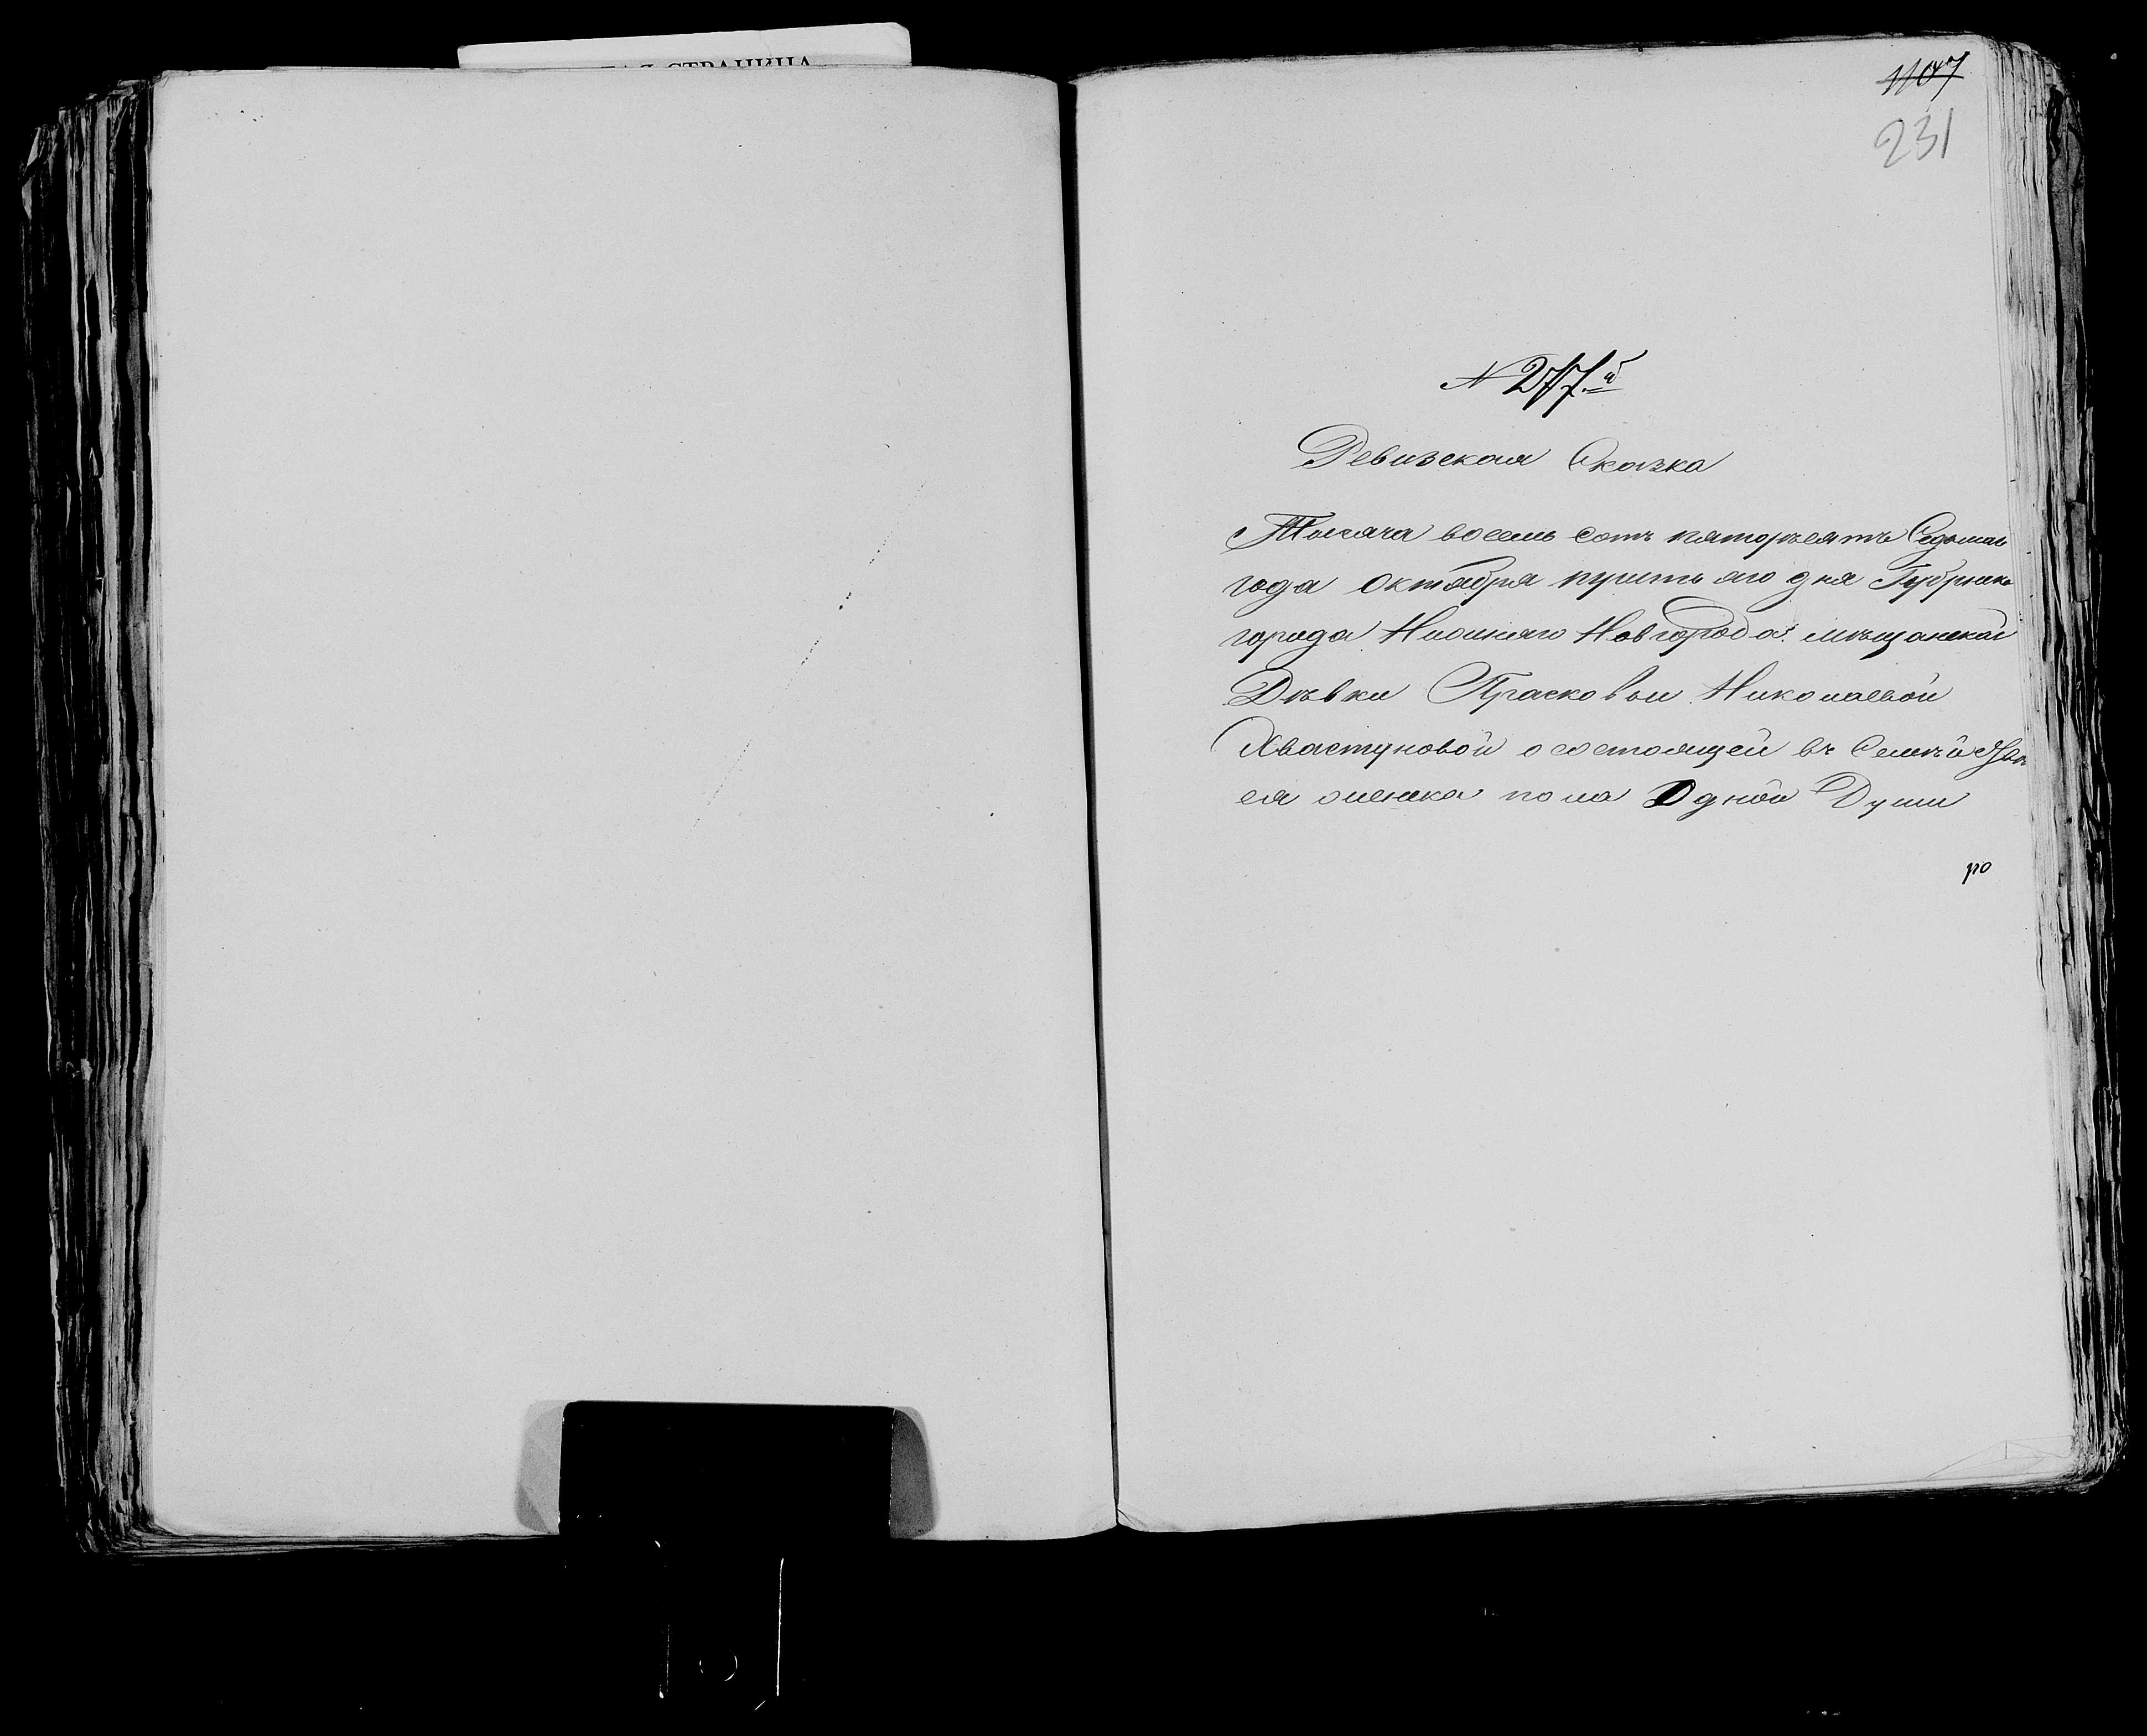 АЯ СТРАНИЦА
1107
231
№ 277.й
Ревизская Сказка
Тысяча восемь сотъ пятдесятъ Седьмаго
года Октября дня Губернск
города Нижняго Новгорода мѣщанской
Дѣвки Прасковьи Николаевой
Хвастуновой о состоящей въ Семьѣ
ея женска пола Одной Души